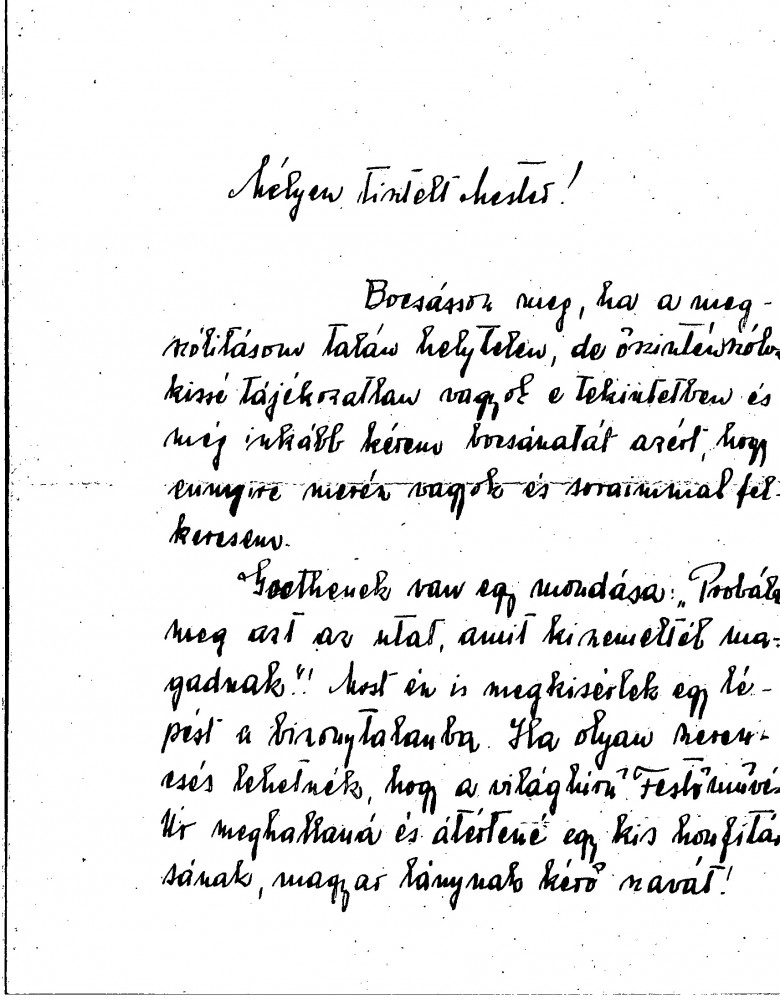 Mélyen tisztelt Mester!
Bocsásson meg, ha a meg-
szólitásom talán helytelen, de őszintén szólva
kissé tájékozatlan vagyok e tekintetben és
még inkább kérem bocsánatát azért, hogy
ennyire merész vagyok és soraimmal fel-
keresem.
Goethenek van egy mondása: „Probáld
meg azt az utat, amit kiszemeltél ma-
gadnak"! Most én is megkisérlek egy lé-
pést a bizonytalanba. Ha olyan szeren-
csés lehetnék, hogy a világhirű Festőművész
Úr meghallaná és átértené egy kis honfitár-
sának, magyar lánynak kérő szavát!